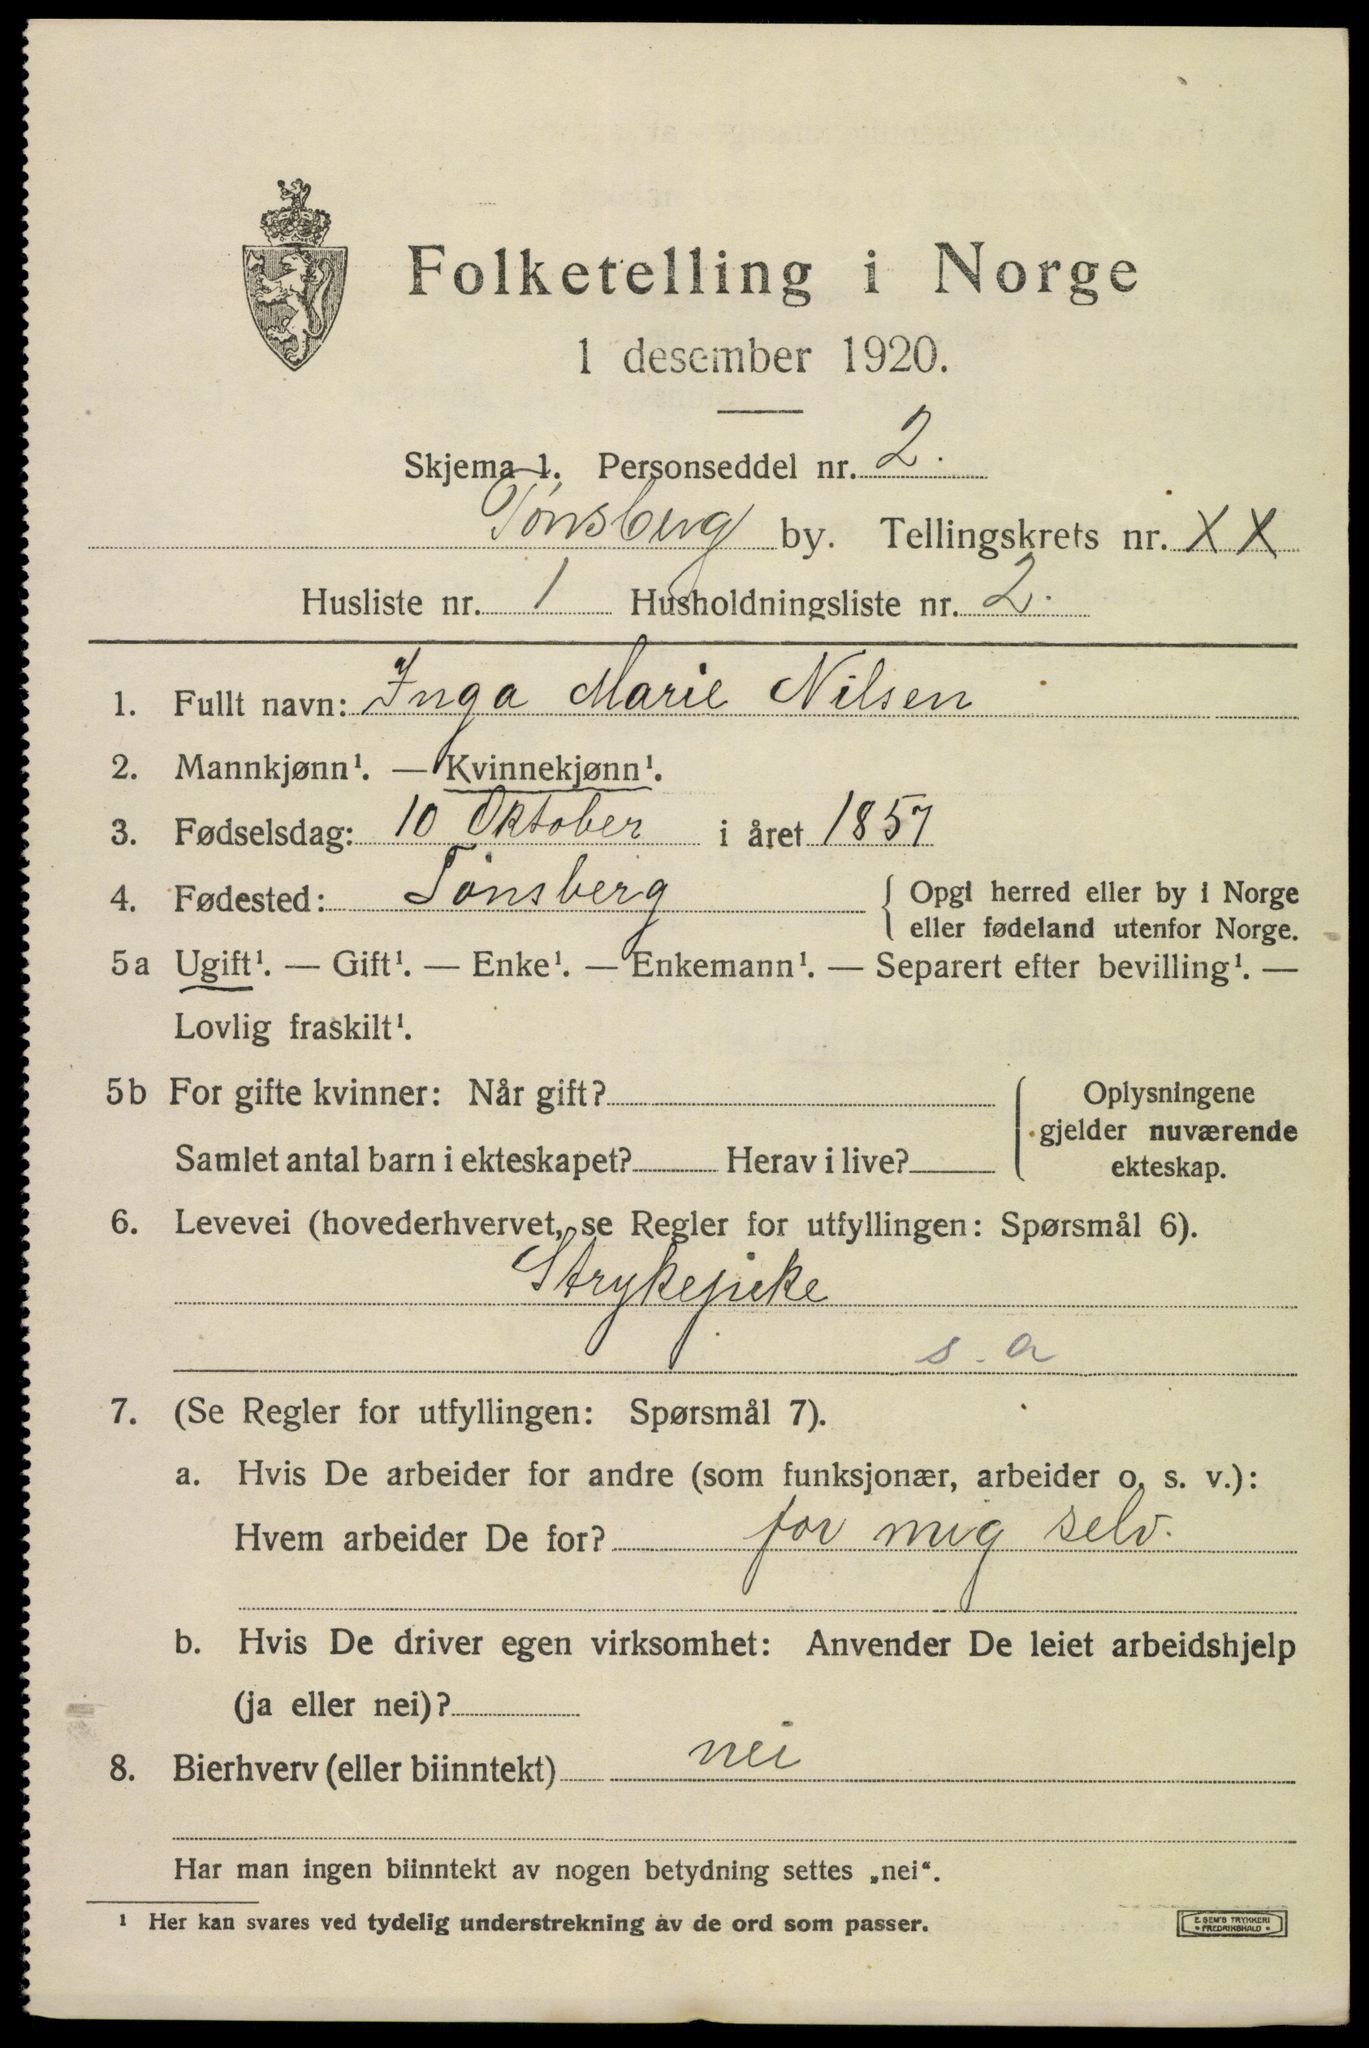 Folketelling i Norge
1 desember 1920.
Skjema 1. Personseddel nr. 2.
Tønsberg by. Tellingskrets nr. XX
Husliste nr. 1 Husholdningsliste nr. 2.
1. Fullt navn: Inga Marie Nilsen
2. Mannkjønn¹. — Kvinnekjønn¹.
3. Fødselsdag: 10 Oktober i året 1857
4. Fødested: Tønsberg { Opgi herred eller by i Norge
eller fødeland utenfor Norge.
5a Ugift¹. — Gift¹. — Enke¹. — Enkemann¹. — Separert efter bevilling¹. —
Lovlig fraskilt¹.
5b For gifte kvinner: Når gift?
Samlet antal barn i ekteskapet? Herav i live?
Oplysningene
gjelder nuværende
ekteskap.
6. Levevei (hovederhvervet, se Regler for utfyllingen: Spørsmål 6).
Strykepike
s. a
7. (Se Regler for utfyllingen: Spørsmål 7).
a. Hvis De arbeider for andre (som funksjonær, arbeider o. s. v.):
Hvem arbeider De for? for mig selv.
b. Hvis De driver egen virksomhet: Anvender De leiet arbeidshjelp
(ja eller nei)?
8. Bierhverv (eller biinntekt) nei
Har man ingen biinntekt av nogen betydning settes „nei“.
¹ Her kan svares ved tydelig understrekning av de ord som passer.
E. SEM'S TRYKKERI
• FREDRIKSHALD •